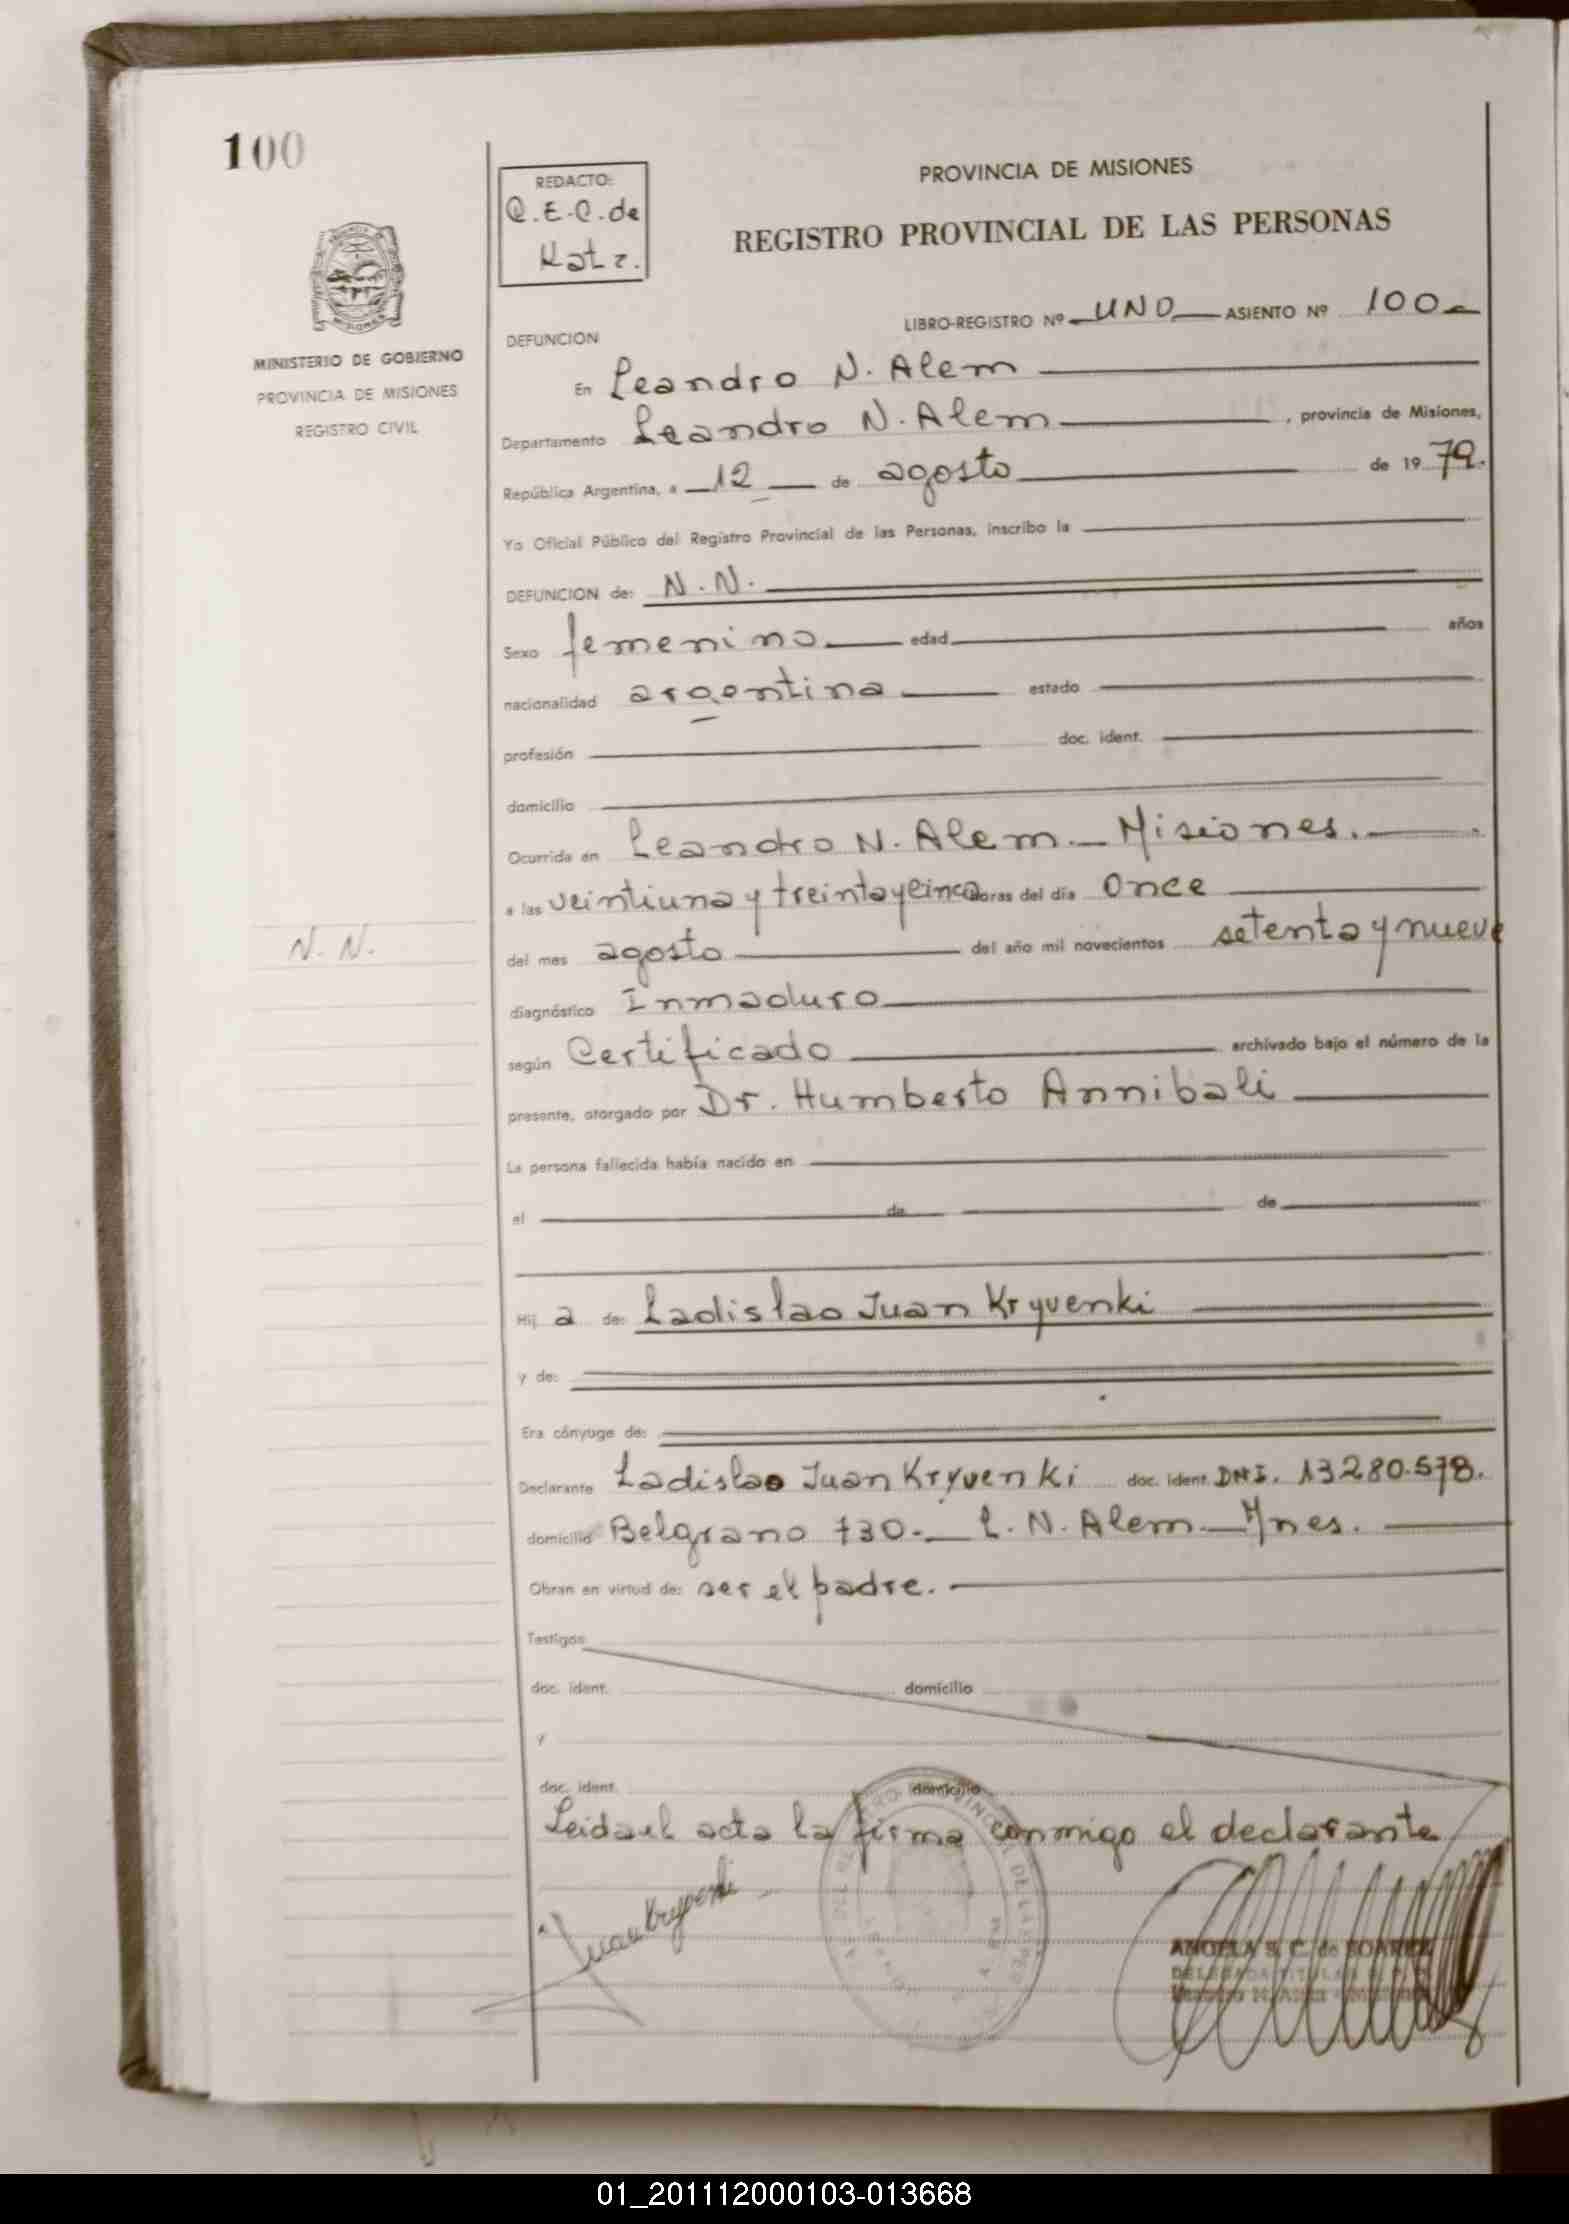 100
REDACTO:
Q.E.C. de
Katz.
PROVINCIA DE MISIONES
REGISTRO PROVINCIAL DE LAS PERSONAS
MINISTERIO DE GOBIERNO
PROVINCIA DE MISIONES
REGISTRO CIVIL
LIBRO-REGISTRO Nº UNO ASIENTO Nº 100
DEFUNCION
En Leandro N. Alem
Departamento Leandro N. Alem, provincia de Misiones,
República Argentina, a 12 de agosto de 1979.
Yo Oficial Público del Registro Provincial de las Personas, inscribo la
DEFUNCION de: N.N.
Sexo femenino edad años
nacionalidad argentina estado
profesión doc. ident.
domicilio
Ocurrida en Leandro N. Alem. Misiones.
a las veintiuna y treinta y cinco horas del día Once
N. N.
del mes agosto del año mil novecientos setenta y nueve
diagnóstico Inmaduro
según Certificado archivado bajo el número de la
presente, otorgado por Dr. Humberto Annibali
La persona fallecida había nacido en
el de de
Hij a de: Ladislao Juan Kryvenki
y de:
Era cónyuge de:
Declarante Ladislao Juan Kryvenki doc. ident. DNI. 13280.578.
domicilio Belgrano 730. L. N. Alem. Mnes.
Obran en virtud de: ser el padre.
Testigos
doc. ident. domicilio
y
doc. ident. domicilio
Leida el acta la firma conmigo el declarante
Juan Kryvenki
ANGELA S. C. de SOAREZ
DELEGADA TITULAR
Leandro N. Alem - Misiones
01_201112000103-013668